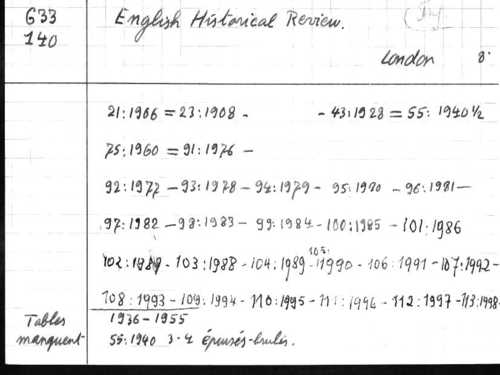 633
140
English Historical Review.
London 8°
21:1906 = 23:1908 - - 43:1928 = 55:1940 1/2
75:1960 = 91:1976 -
92:1977 - 93:1978 - 94:1979 - 95:1980 - 96:1981 -
97:1982 - 98:1983 - 99:1984 - 100:1985 - 101:1986
102:1987 - 103:1988 - 104:1989 - 105:1990 - 106:1991 - 107:1992 -
108:1993 - 109:1994 - 110:1995 - 111:1996 - 112:1997 - 113:1998
Tables manquent
1936-1955
55:1940 3-4 épuisés-brulés.